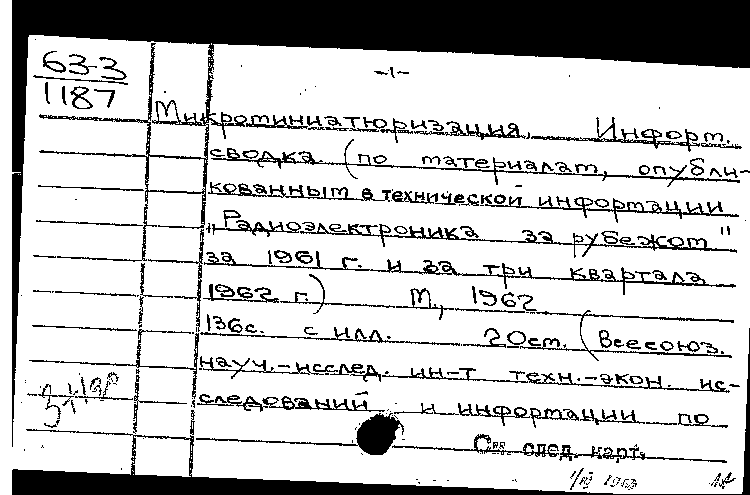 63-3
1187
-1-
Микроминиатюризация. Информ.
сводка (по материалам, опубли-
кованным в технической информации
„Радиоэлектроника за рубежом"
за 1961 г. и за три квартала
1962 г.) М., 1962
136с. с илл. 20см. (Всесоюз.
науч.-исслед. ин-т техн.-экон. ис-
следований и информации по
См. след. карт.
1963